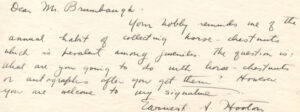 Dear Mr. Brumbaugh:
Your hobby reminds me of the
annual habit of collecting horse-chestnuts
which is prevalent among juveniles. The question is:
what are you going to do with horse-chestnuts
or autographs after you get them? However
you are welcome to my signature
Earnest A. Hooton